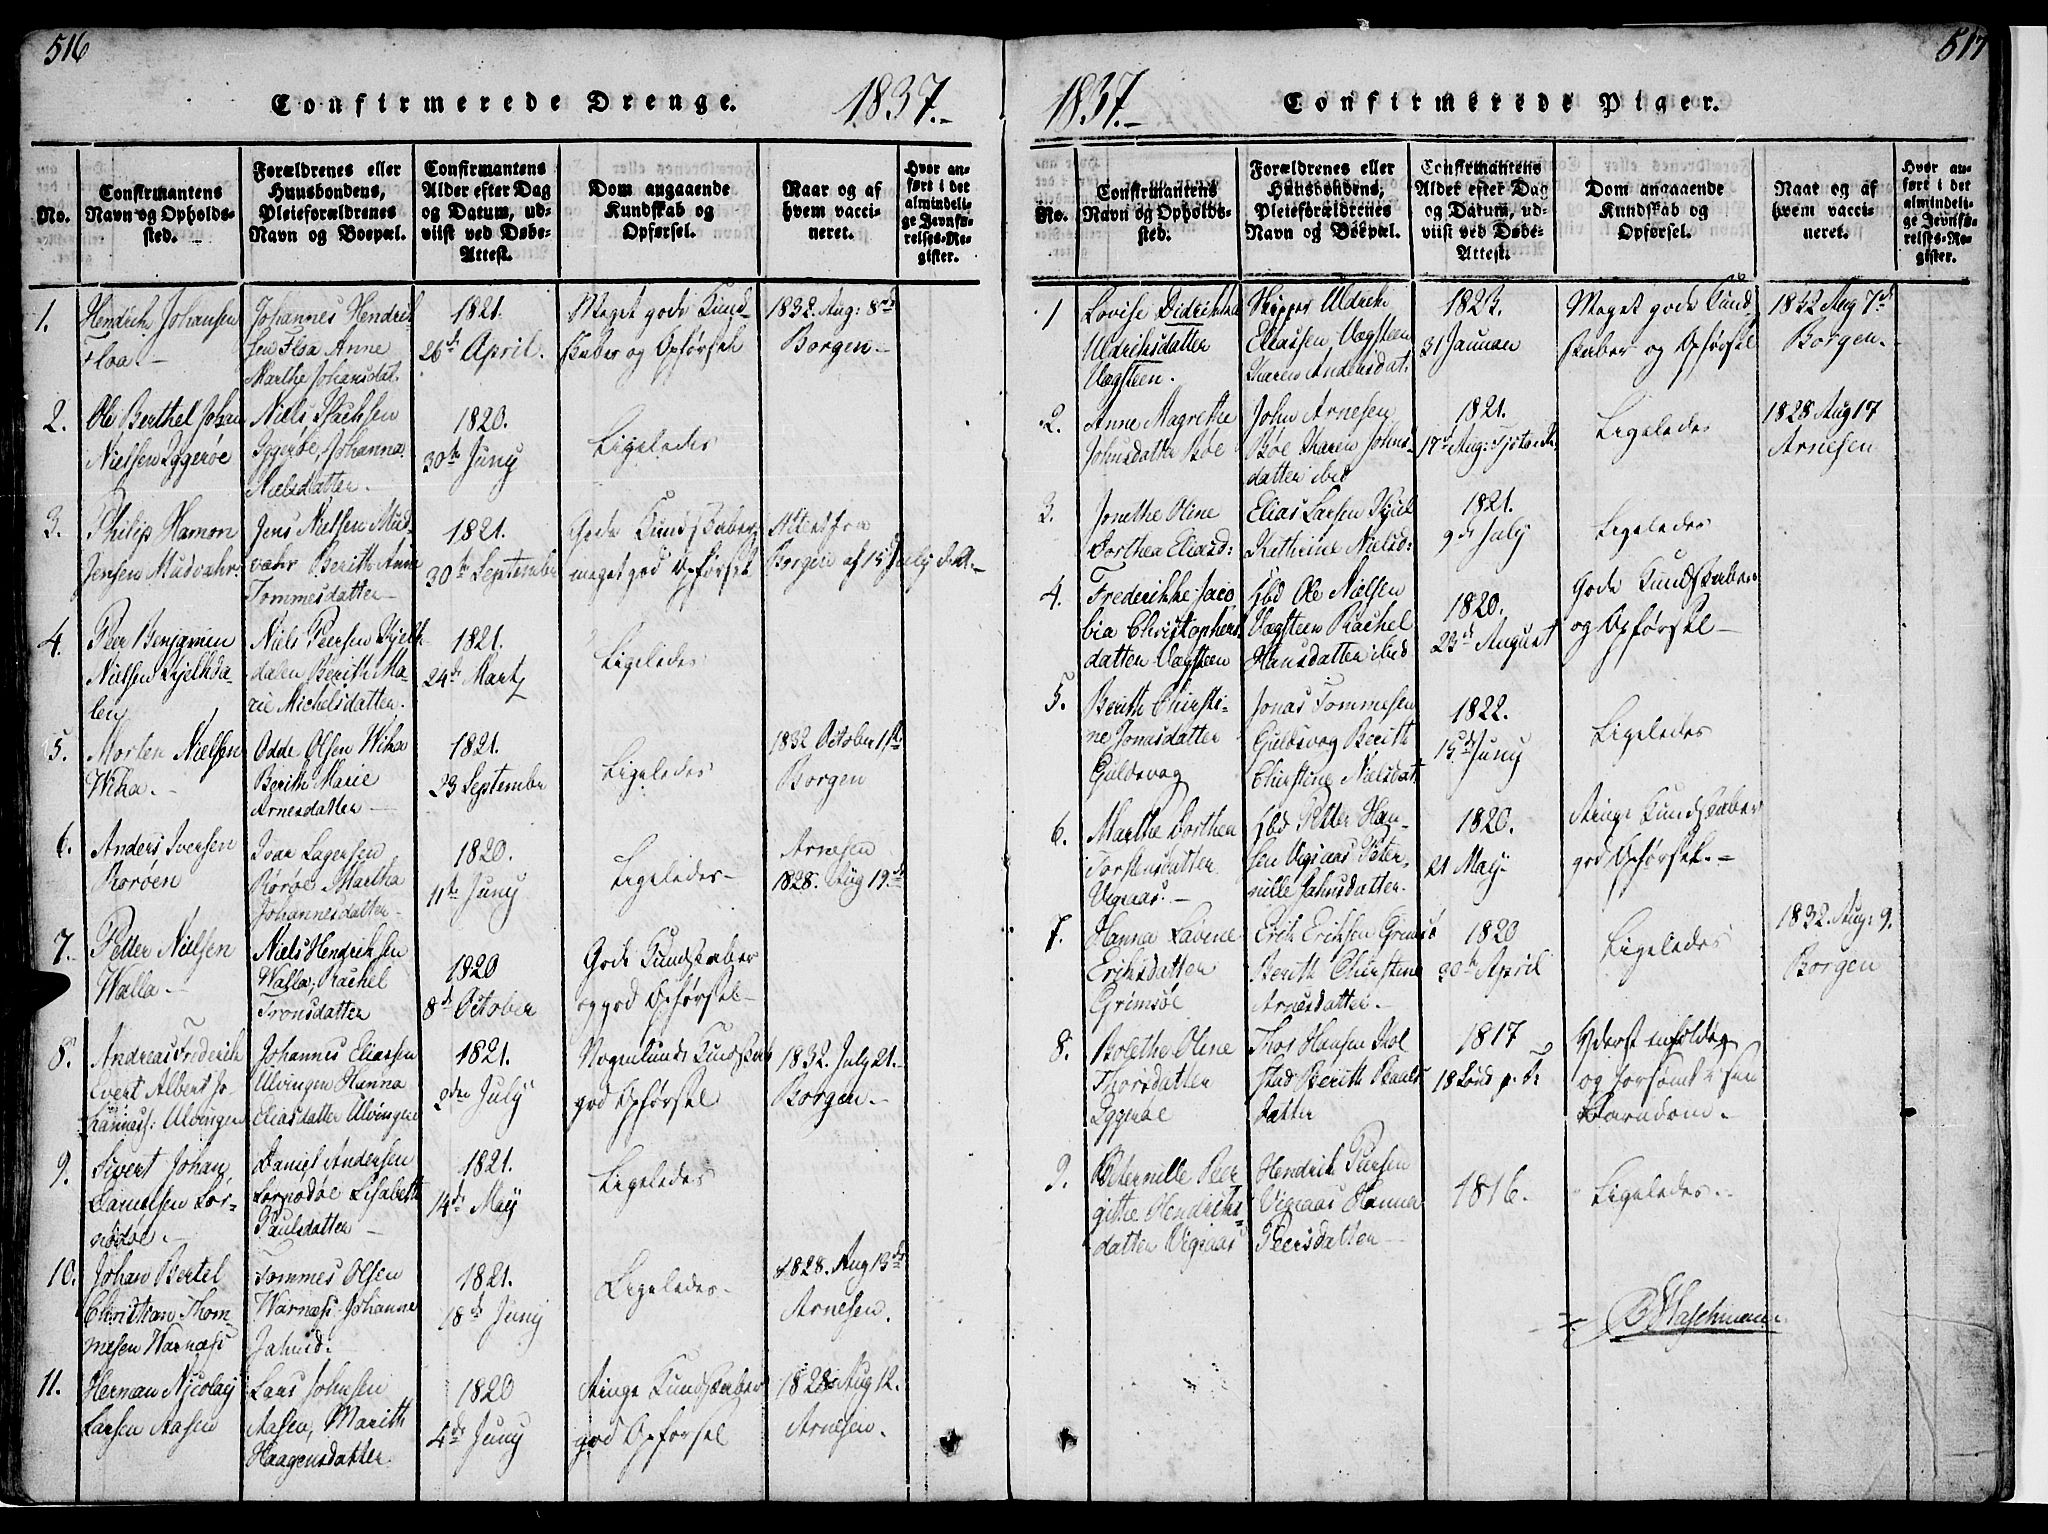 516
Confirmerede Drenge.
1837.
No.
Confirmantens Navn og Opholdssted.
Forældrenes eller Huusbondens, Pleieforældrenes Navn og Boepæl.
Confirmantens Alder efter Dag og Datum, udviist ved Døbe-Attest.
Dom angaaende Kundskab og Opførsel.
Naar og af hvem vaccineret.
Hvor anført i det almindelige Jevnførelses-Register.
1.
Hendrik Johansen
Floa.
Johannes Hendrik
sen Floa Anne
Marthe Johansdat.
1821.
26de April.
Meget gode Kund
skaber og Opførsel
1832. Aug: 8de
Borgen
2.
Ole Berthel Johan
Nielsen Iggerøe
Niels Isachsen
Iggerøe, Johanna
Nielsdatter
1820.
30te Juny
Ligeledes
3.
Philip Hamon
Jensen Mudvahr
Jens Nielsen Mud
værr Berith Ann
Tommesdatter
1821.
30te September
Gode Kundskaber
meget god Opførsel
Attest fra
Borgen af 15 July d. A.
4.
Peer Benjamin
Nielsen Kjelkda
len
Niels Peersen Kjelk
dalen Berith Ma
rie Michelsdatter.
1821.
24de Marts
Ligeledes
5.
Morten Nielsen
Wika.
Odde Olsen Wika
Berith Marie
Arnesdatter
1821.
23 September
Ligeledes
1832 October 11te
Borgen
6.
Anders Iversen
Rorøen
Ivar Lagersen
Rorøe Martha
Johannesdatter
1820.
11te Juny
Ligeledes
Arnesen
1828. Aug 19de
7.
Petter Nielsen
Walla
Niels Hendriksen
Walla, Rachel
Tronsdatter
1820
8de October
Gode Kundskaber
og god Opførsel
8.
Andreas Frederik
Evert Albert Jo
hanness: Ulvingen
Johannes Eliassen
Ulvingen Hanna
Eliasdatter Ulvingen
1821.
2den July
Nogenlunde Kundskab
god Opførsel
1832. July 21.
Borgen.
9.
Sivert Johan
Danielsen Lor
nødøe.
Daniel Andersen
Lornødøe Lisabeth
Paulsdatter
1821.
14de May
Ligeledes
10.
Johan Bertel
Christian Thom
mesen Warnæs
Tommes Olsen
Warnæs Johanne
1821.
18de Juny
Ligeledes
1828. Aug 13de
Arnesen.
11.
Herman Nicolay
Larsen Aasen
Lars Johnsen
Aasen, Marith
Haagensdatter
1820
4de Juny
Ringe Kundskaber
god Opførsel
1828 Aug 12.
Arnesen.
517
1837.
Confirmerede Piger.
No.
Confirmantens Navn og Opholdssted.
Forældrenes eller Huusbondens, Pleieforældrenes Navn og Boepæl.
Confirmantens Alder efter Dag og Datum, udviist ved Døbe-Attest.
Dom angaaende Kundskab og Opførsel.
Naar og af hvem vaccineret.
Hvor anført i det almindelige Jevnførelses-Register.
1
Lovise Didrikka
Uldriksdatter
Vægsteen.
Skipper Uldrik
Eliassen Vægsteen
Karen Andersdat.
1823.
31 Januar
Meget gode Kund
skaber og Opførsel
1832 Aug 7de
Borgen.
2.
Anne Magrethe
Johnsdatter Bøe
John Arnesen
Bøe Karen Johns
datter ibid
1821.
17de Aug: Tjøtta
Ligeledes
1828 Aug 17
Arnesen
3.
Jonethe Oline
Dorthea Eliasd:
Elias Larsen
Kathrine Nielsd:
1821.
9de July
Ligeledes
4.
Frederikke Jaco
bia Christophers
datter Vægsteen
Gbd Ole Nielsen
Vægsteen Rachel
Hansdatter ibid
1820.
23de August
Gode Kundskaber
og Opførsel
5.
Berith Christi
ne Jonasdatter
Guldsvog
Jonas Tommesen
Guldsvog Berith
Christine Nielsdat
1822.
15de Juny
Ligeledes
6.
Marthe Dorthea
Torstensdatter
Vigraas.
Gbd Petter Han
sen Vigraas Peter
nille Jahnsdatter.
1820.
21 May
Ringe Kundskaber
god Opførsel.
7.
Hanna Lavine
Eriksdatter
Grimsøe
Erik Eriksen Grimsø
Berith Christine
Arnesdatter.
1820
30te April
Ligeledes
1832. Aug: 9.
Borgen
8.
Bolethe Oline
Thorsdatter
Iggerøe
Thor Hansen Skol
stad Berith Paals
datter
1817
18 Sönd p. Tr
Yderst enfoldig
og forsømt i sin
Barndom.
9.
Peternille Beer
gitte Hendriks
datter Vigraas
Hendrik Persen
Vigraas Hanna
Peersdatter
1816.
Ligeledes.